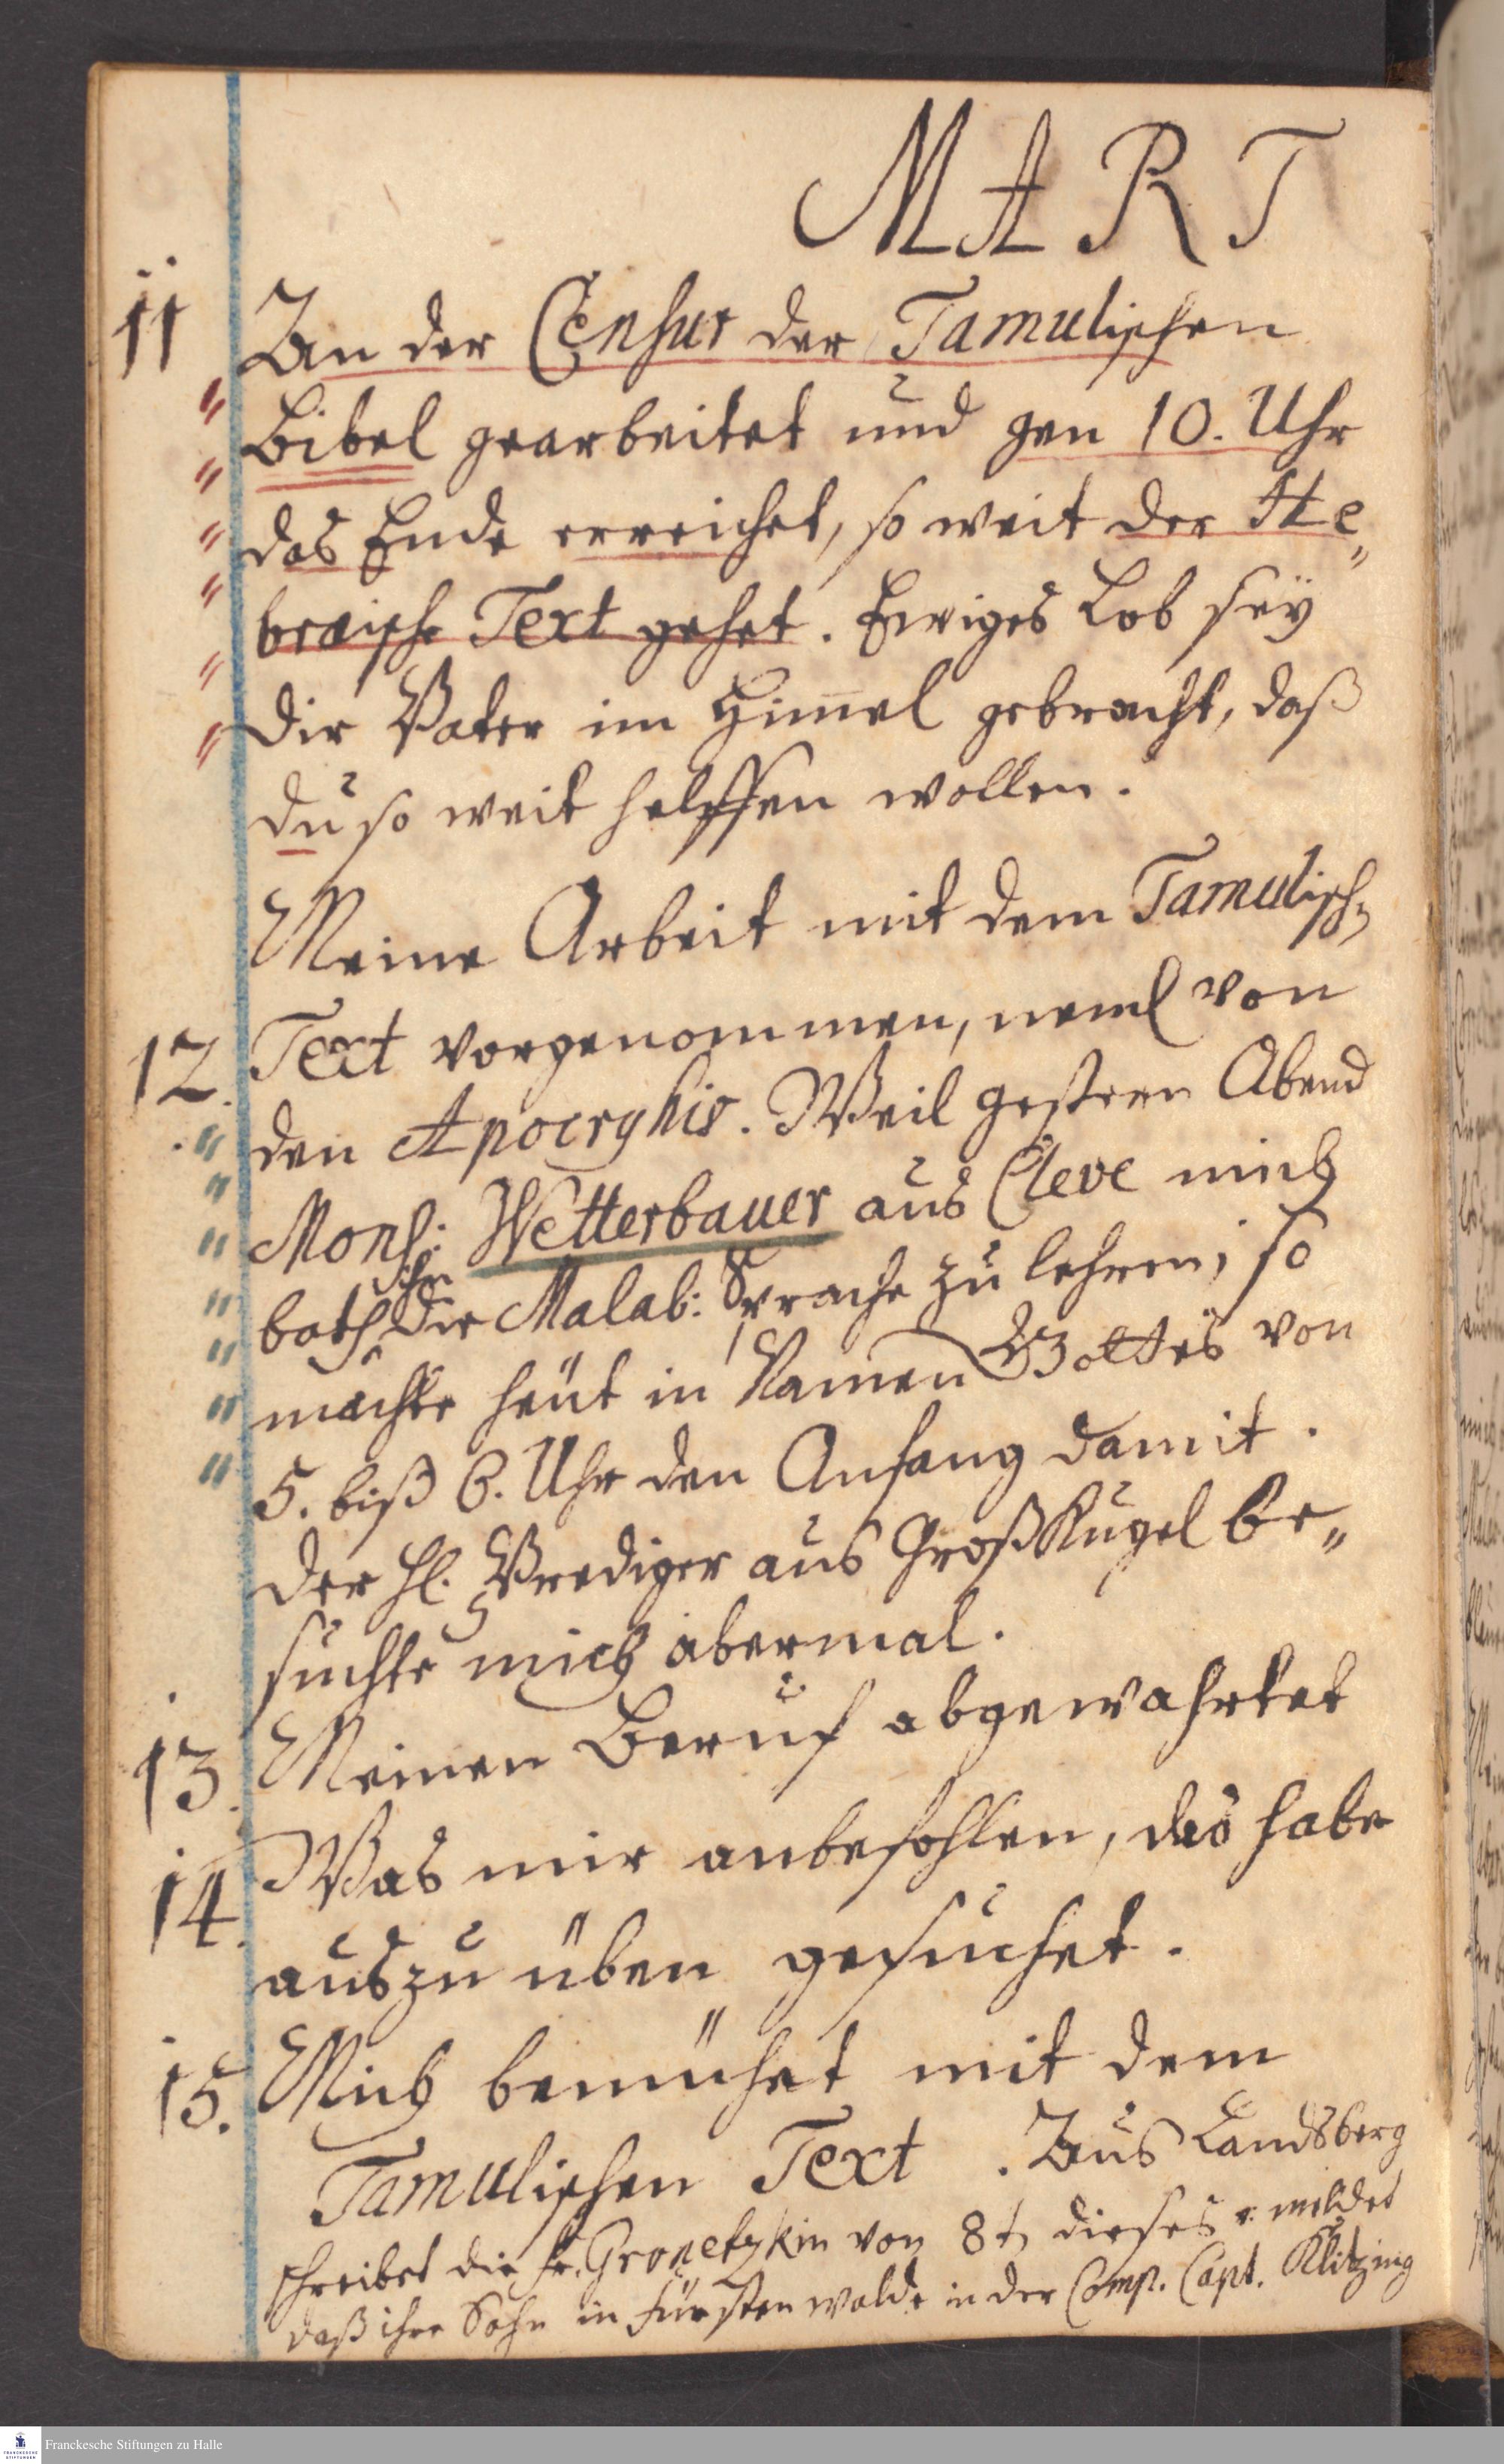 MART
11 An der Censur der Tamulischen
Bibel gearbeitet und gen 10. Uhr
das Ende erreichet, so weit der He„
bræische Text gehet. Ewiges Lob seÿ
dir Vater im Himel gebracht, daß
du so weit helffen wollen.
Meine Arbeit mit dem Tamulisch
12. Text vorgenommen, neml von
den Apocryhis. Weil gestern Abend
Mons: Wetterbauer aus Cleve mich
ihn
bath die Malab: Sprache zu lehren; so
machte heut in Namen Gottes von
5. biß 6. Uhr den Anfang damit.
der Hl. Prediger aus GroßKugel be„
suchte mich abermal.
13. Meinen Beruf abgewahrtet
14. Was mir anbefohlen, das habe
auszu üben gesuchet.
15. Mich bemühet mit dem
Tamulischen Text. Aus Landsberg
schreibet die Fr. Gronetzkin von 8t dieses u. meldet
daß ihr Sohn in Fürstenwalde in der Comp. Capt. Klitzing
Franckesche Stiftungen zu Halle